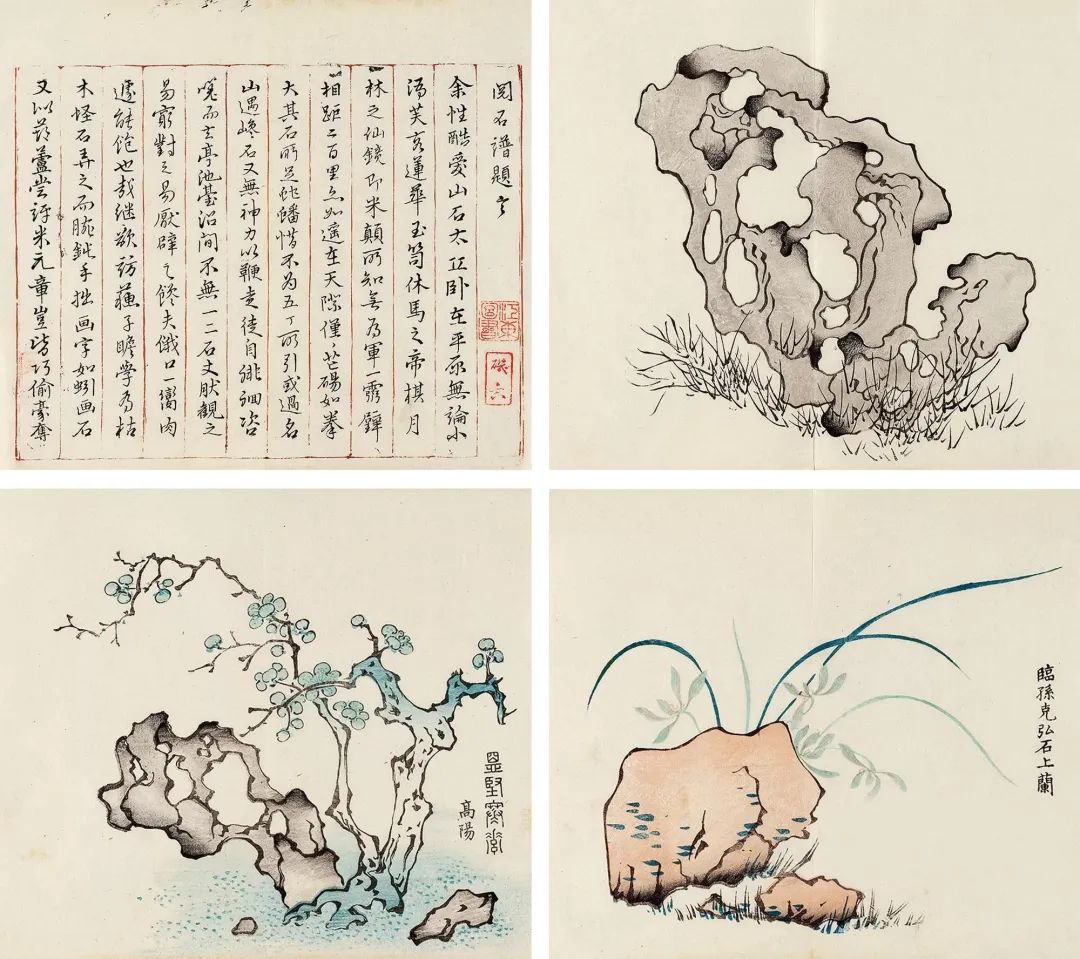 閱石譜題言
余性酷愛山石太丘卧在平原無論小
芙蓉蓮華玉笥休馬之帝棋月
林之仙鏡即米顛所知無為軍一靈壁
相距二百里如遥在天際僅芒碭如拳
大其石所足惜不為五丁所引或過名
山遇峰石又無神力以鞭走徒自徘徊咨
嘆而去亭池臺沼間不無一二石丈狀觀之
易窮對之易厭辟之饞夫俄口一臠肉
遽能飽也哉继欲訪蘇子瞻學為枯
木怪石弄之而腕鈍手拙画字如蚓画石
又似蘆嘗評米元章豈皆巧偷豪奪
高陽
臨孫克弘石上蘭